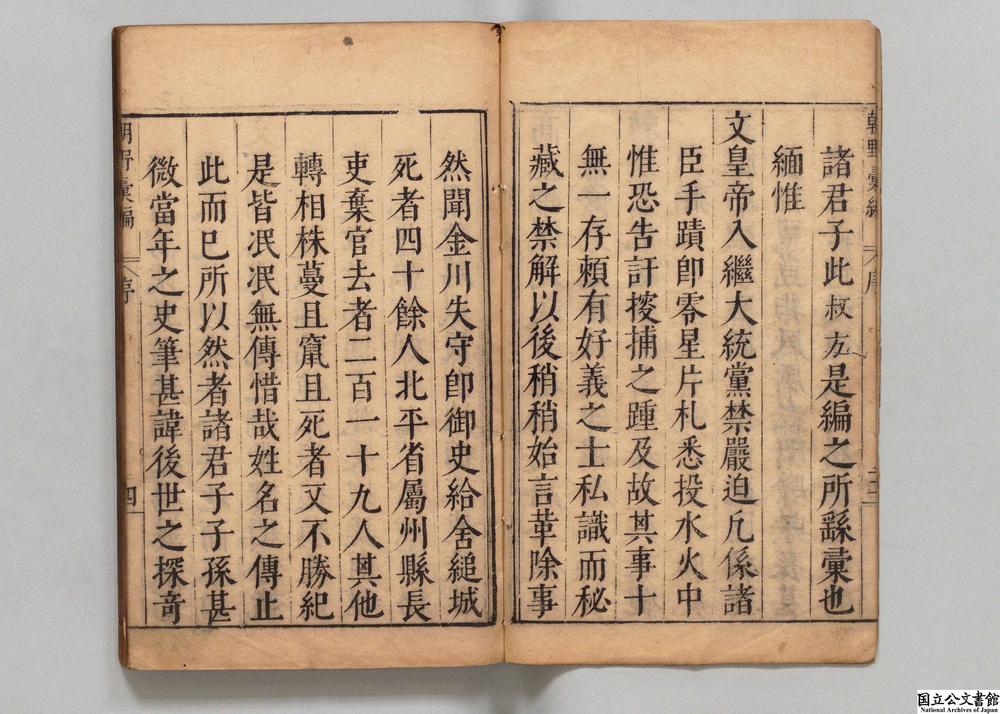 諸君子此叔方是編之所繇彙也
緬惟
文皇帝入繼大統黨禁嚴迫凡係諸
臣手蹟即零星片札悉投水火中
惟恐告訐搜捕之踵及故其事十
無一存頼有好義之士私識而秘
藏之禁解以後稍稍始言革除事
朝野彙編
序
然聞金川失守即御史給舍縋城
死者四十餘人北平省屬州縣長
吏棄官去者二百一十九人其他
轉相株蔓且竄且死者又不勝紀
是皆泯泯無傳惜哉姓名之傳止
此而已所以然者諸君子子孫甚
微當年之史筆甚諱後世之探奇
朝野彙編
序
四
国立公文書館
National Archives of Japan